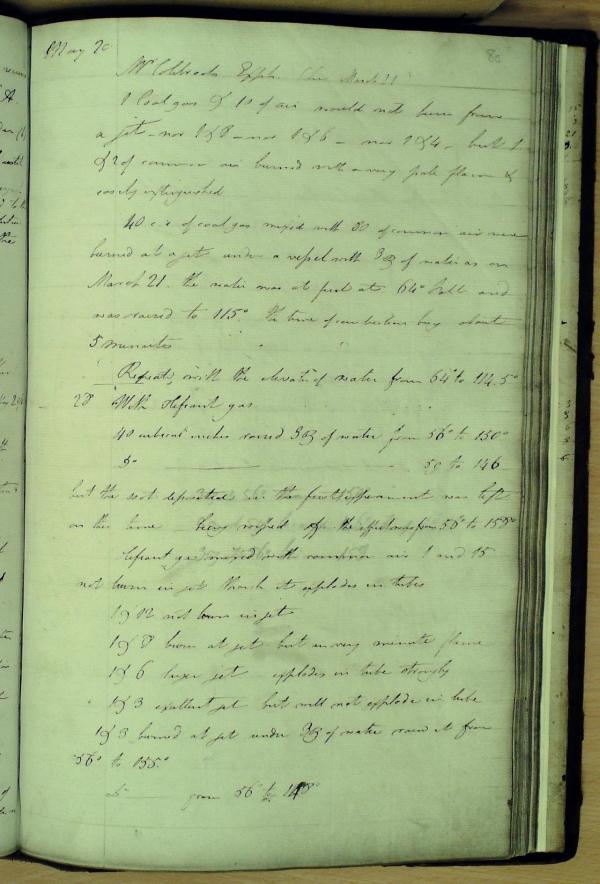 May 20
80
Mr Colebrooks Expts. See March 21
1 Coal gas & 10 of air would not burn from
a jet - nor 1 & 8 - nor 1 & 6 - nor 1 & 4 - but 1
& 2 of common air burned with a very pale flame &
easily extinguished
40 c.i. of coal gas mixed with 80 of common air were
burned at a jet under a vessel with of water as on
March 21. the water was at first at 64° and
was raised to 115° the time of combustion being about
5 minutes
Repeated with the elevatn of water from 64° to 114.5°
28 With Olefiant gas
40 cubical inches raised of water from 56° to 150°
Do 50 to 146
but the soot deposited in the first experiment was left
on this time being wiped off the effect was from 56° to 158°
Olefiant gas mixed with common air 1 and 15
not burn in jet though it explodes in tubes
1 & 12 not burn in jet
1 & 8 burn at jet but in very minute flame
1 & 6 larger jet explodes in tube strongly
1 & 3 excellent jet but will not explode in tube
1 & 3 burned at jet under of water raised it from
56° to 155°
do from 56° to 148°